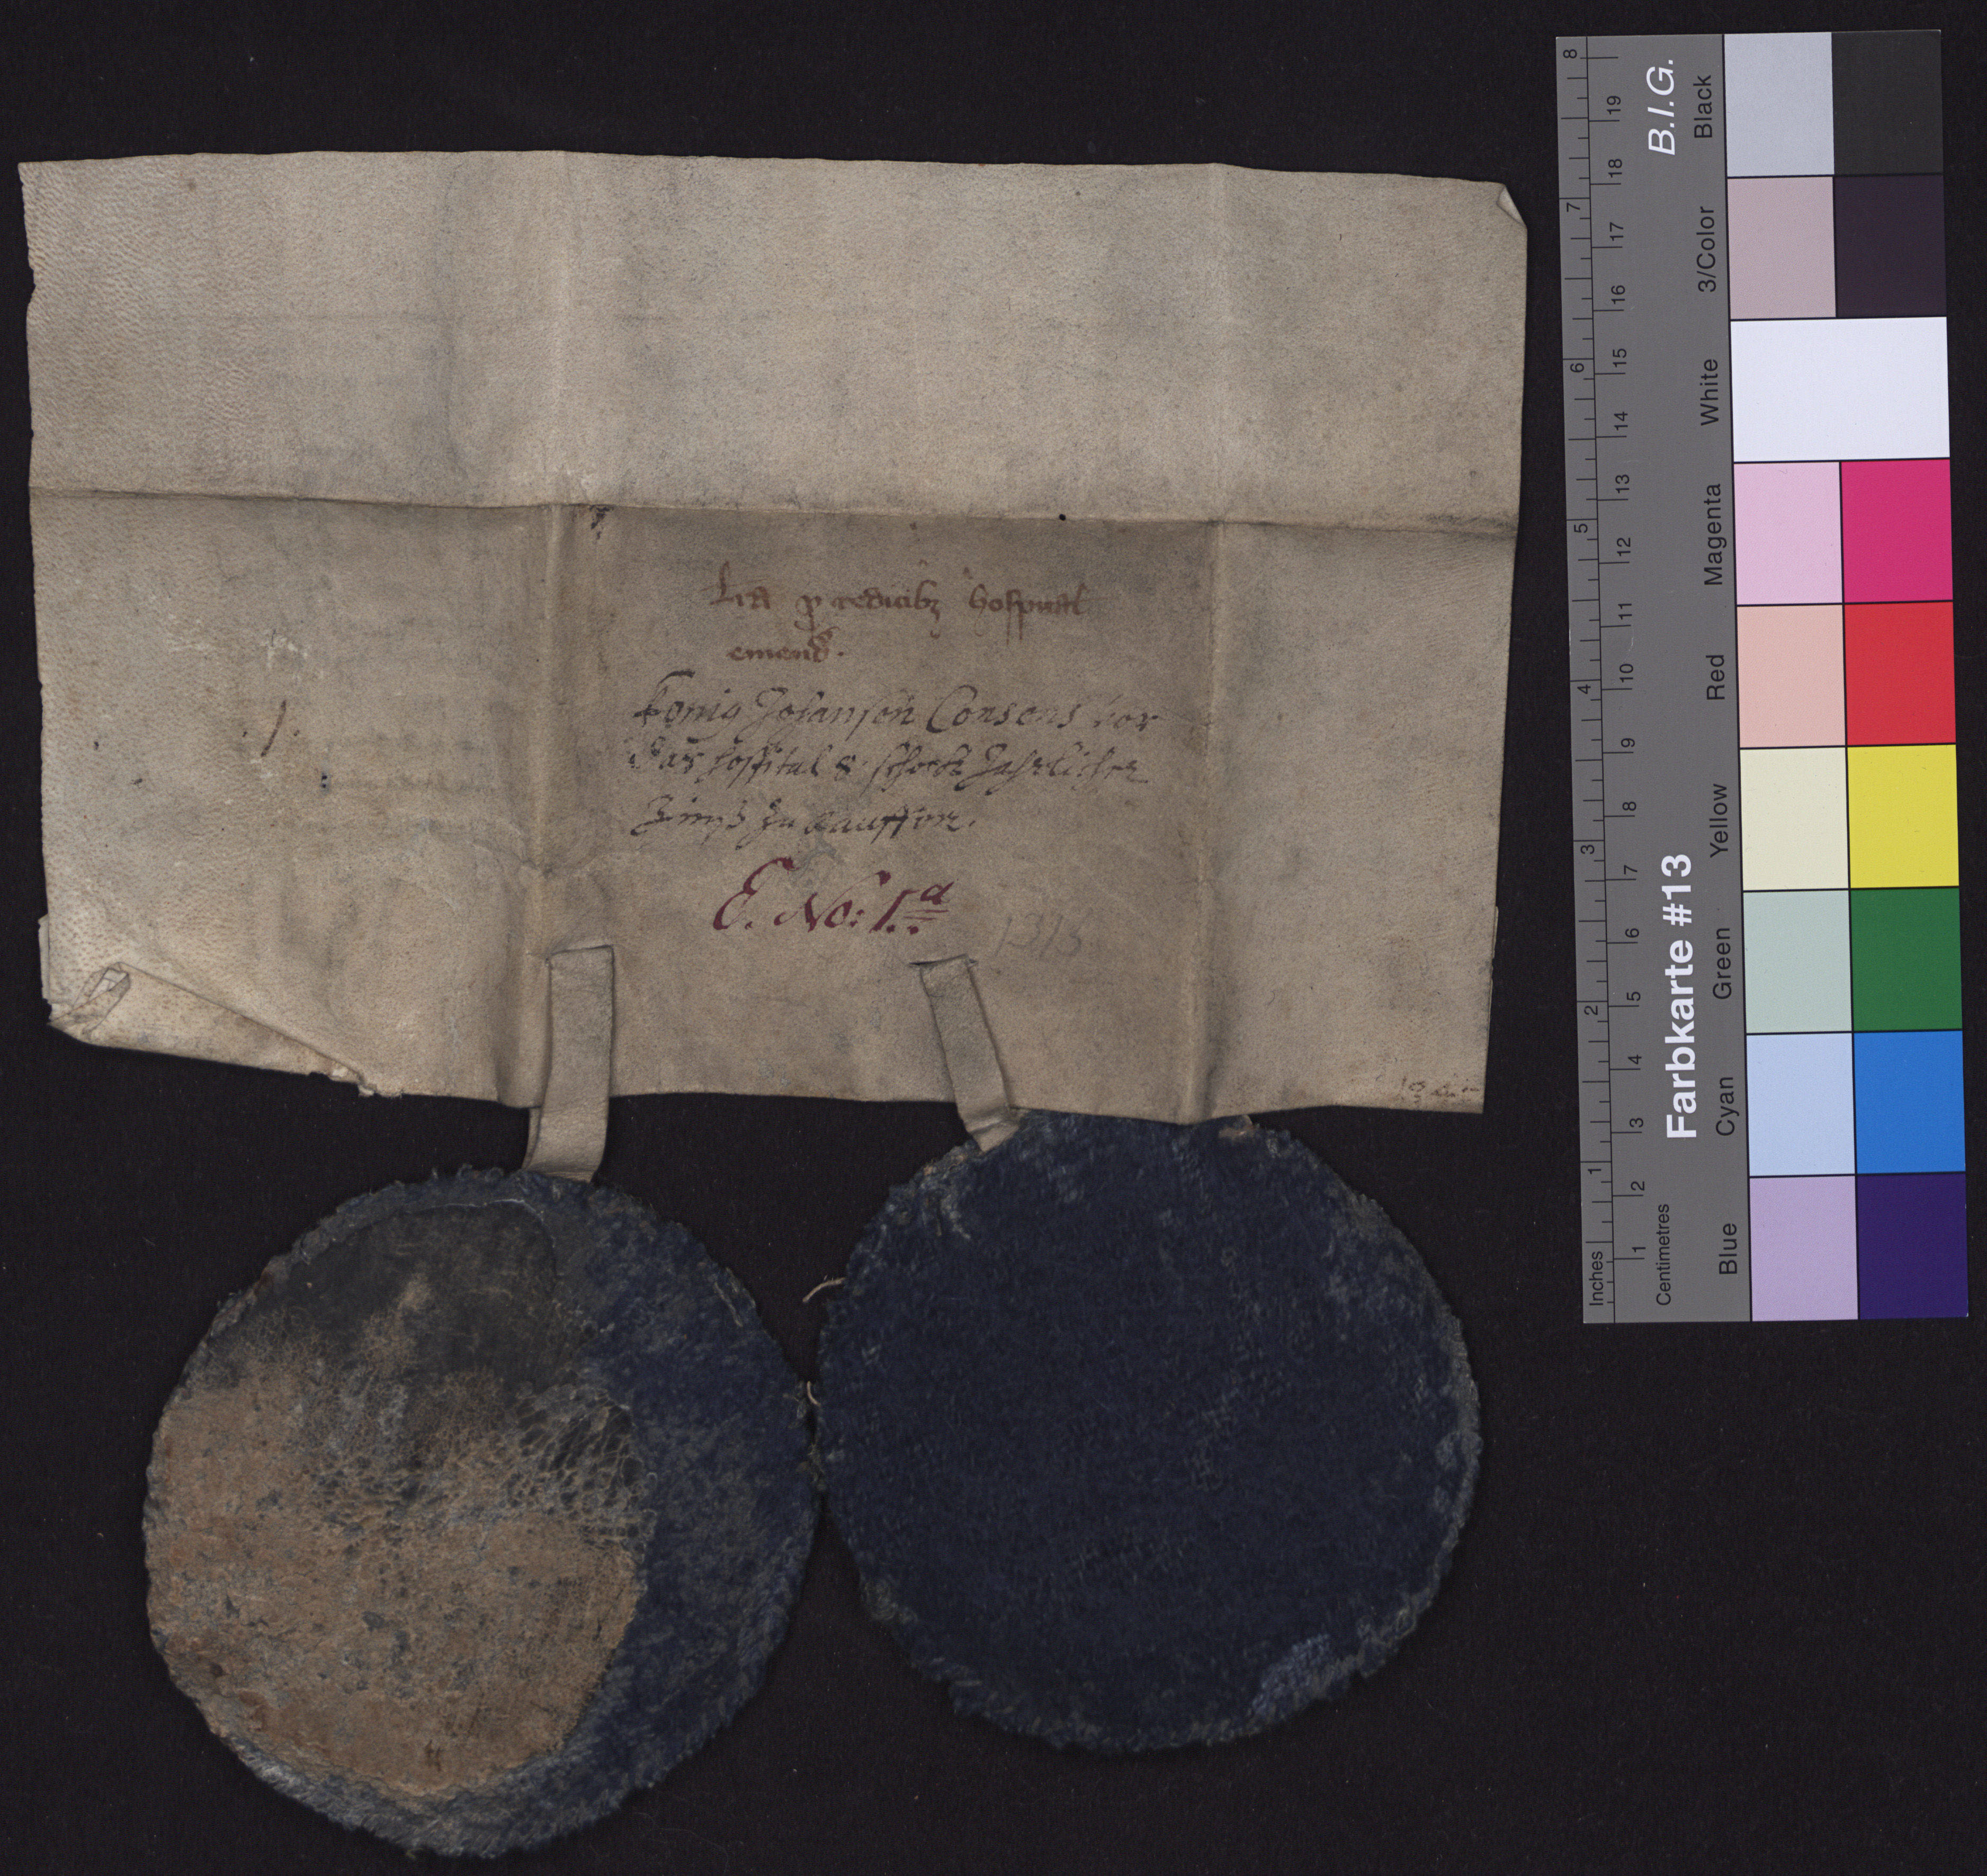 Lra p redditibz hospitał
emend.
König Johansen Consens vor
das hospital 8 schock Jahrlicher
Zinß zu Kauffen.
E. No: 1.a
1315
.1.
B.I.G.
Farbkarte #13
Inches
Centimetres
1 2 3 4 5 6 7 8
1 2 3 4 5 6 7 8 9 10 11 12 13 14 15 16 17 18 19
Blue Cyan Green Yellow Red Magenta White 3/Color Black